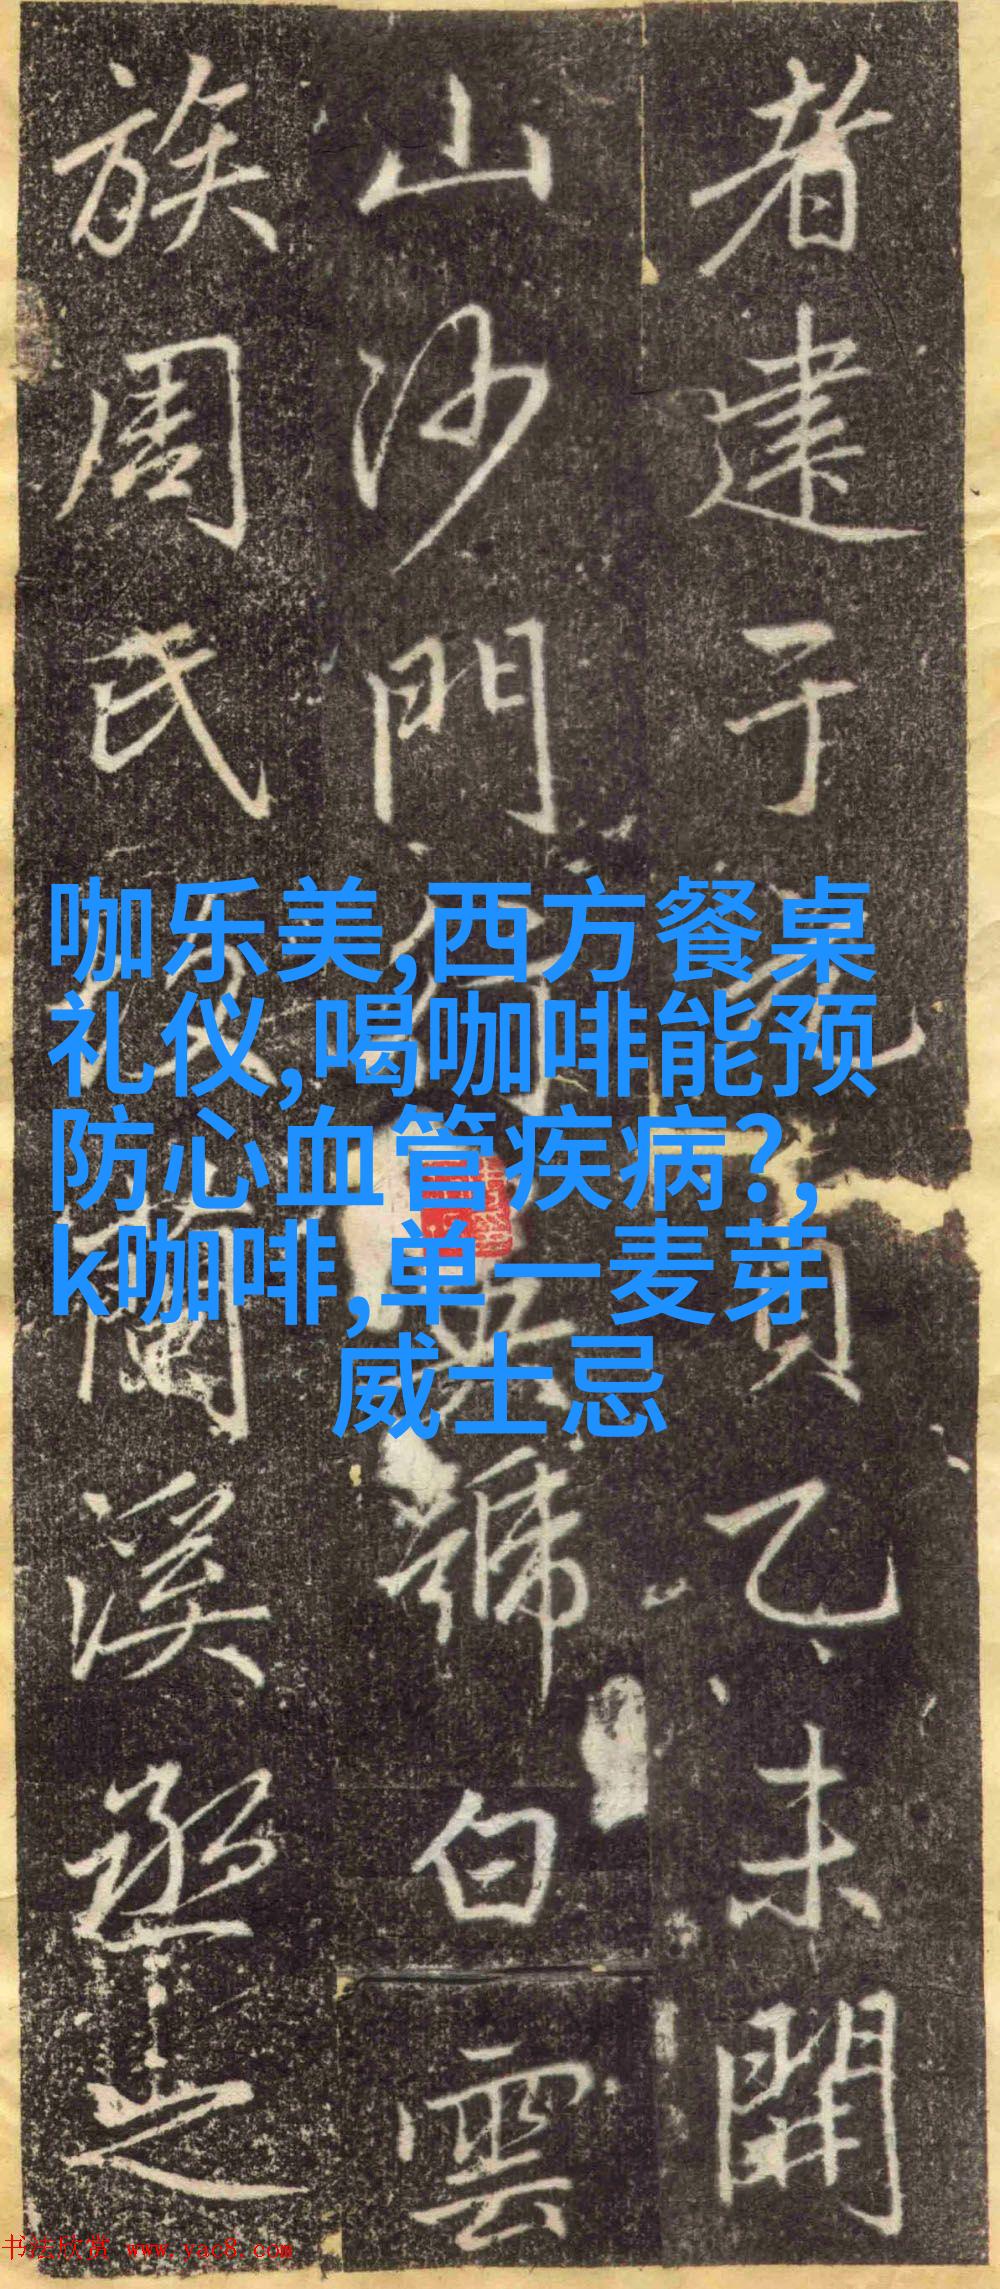 者建于元貞乙未開
山沙門號白雲
族周氏蘭溪丞之
咖乐美,西方餐桌
礼仪,喝咖啡能预
防心血管疾病?,
k咖啡,单一麦芽
威士忌
书法欣赏 www.yac8.com